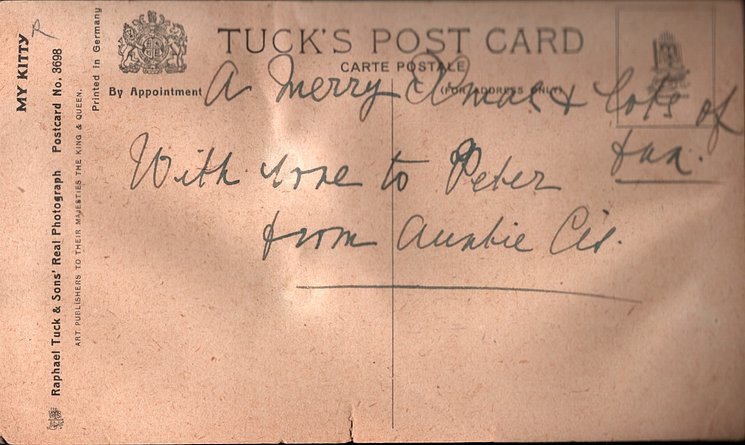 MY KITTY
Raphael Tuck & Sons' Real Photograph Postcard No. 3698
ART PUBLISHERS TO THEIR MAJESTIES THE KING & QUEEN.
Printed in Germany
By Appointment
TUCK'S POST CARD
CARTE POSTALE
(FOR ADDRESS ONLY)
A Merry Xmas & lots of
fun.
With love to Peter
from Auntie Cis.